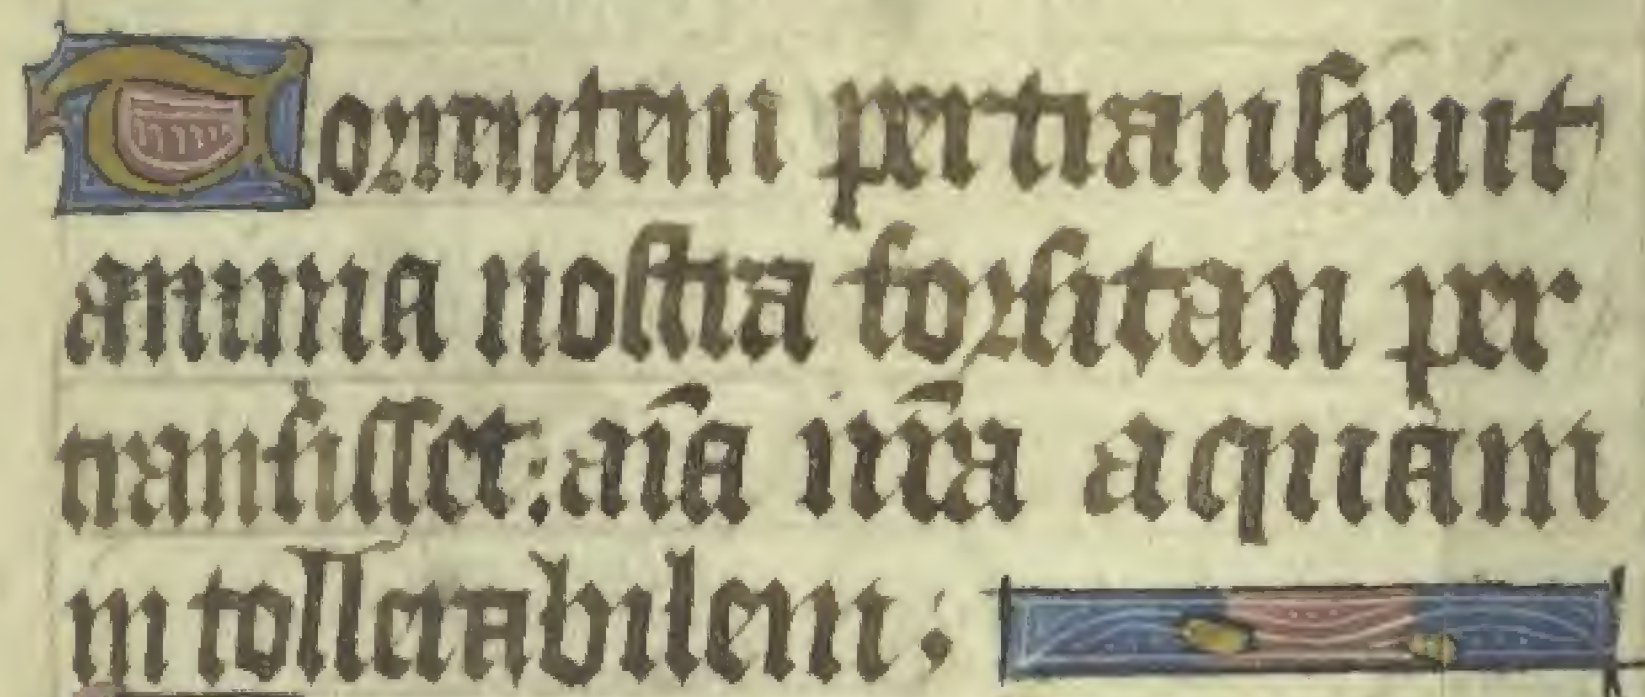 Torrentem pertransiuit
anima nostra forsitan per
transisset: aīa nr̄a aquam
in tollerabilem: